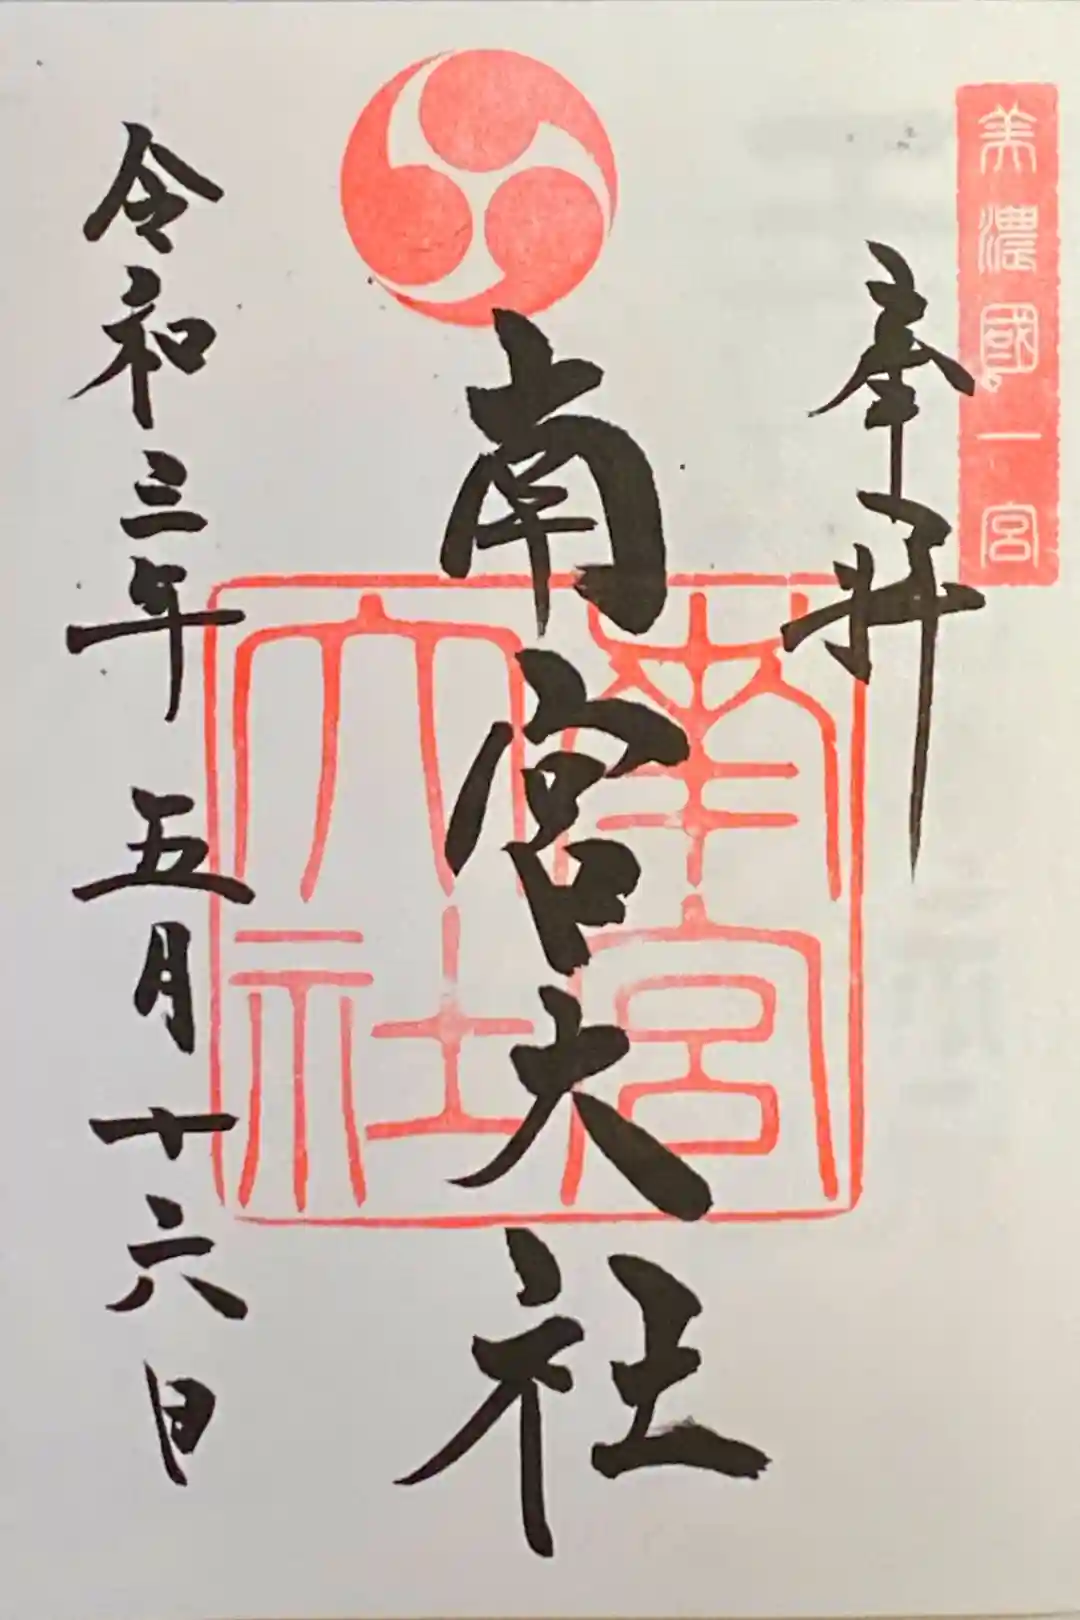 美濃國一宮
奉拝
南宮大社
南宮大社
令和三年 五月十六日